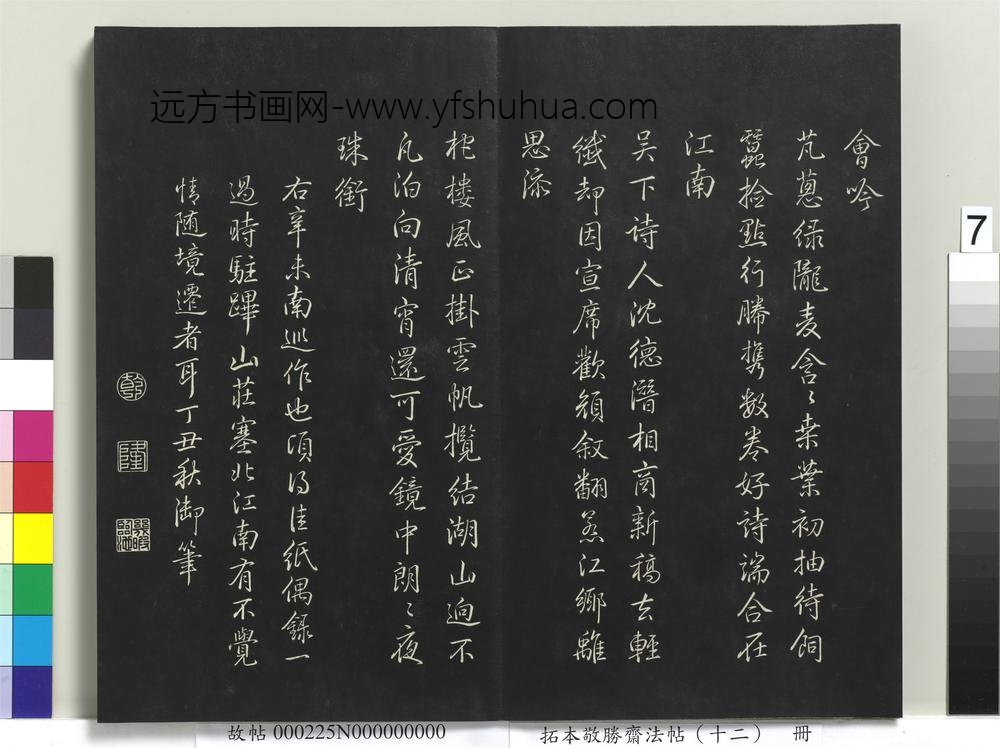 远方书画网-www.yfshuhua.com
會吟
芃蔥緑隴麦含〻桒葉初抽待飼
蠶撿點行縢携数卷好詩端合在
江南
吴下诗人沈德潛相商新稿去輕
纖却因宣席歡顏叙翻惹江鄉離
思添
柁樓風正掛雲帆攬結湖山迥不
凡泊向清宵還可愛鏡中朗〻夜
珠銜
右辛未南巡作也頃得佳紙偶録一
過時駐蹕山莊塞北江南有不覺
情随境遷者耳丁丑秋御筆
乾
隆
7
故帖 000225N000000000
拓本敬勝齋法帖（十二） 冊